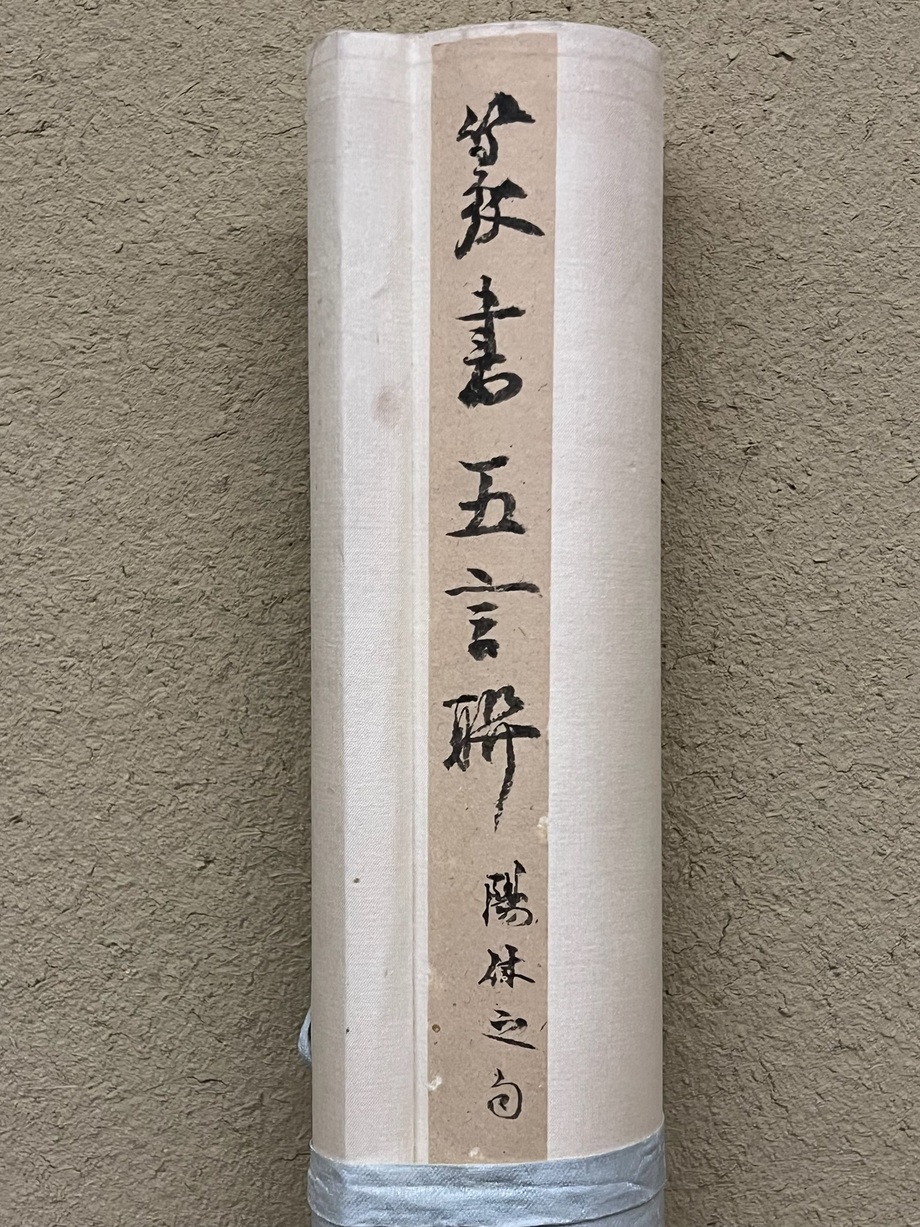 篆書五言聯
陽休之句